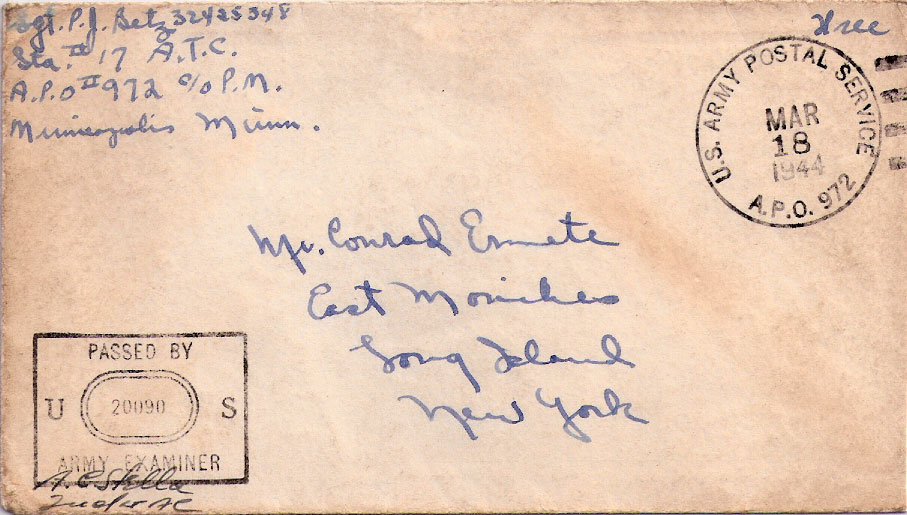 Sgt. P. J. Betz 32425348
Sta. # 17 A.T.C.
A.P.O # 972 c/o P.M.
Minneapolis Minn.
Free
U.S. ARMY POSTAL SERVICE
MAR
18
1944
A.P.O. 972
Mr. Conrad Ernete
East Moriches
Long Island
New York
PASSED BY
U 20090 S
ARMY EXAMINER